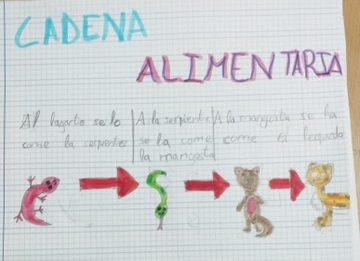 CADENA
ALIMENTARIA
Al lagarto se lo
come la serpiente
A la serpiente
se la come
la mangosta
A la mangosta se la
come el leopardo